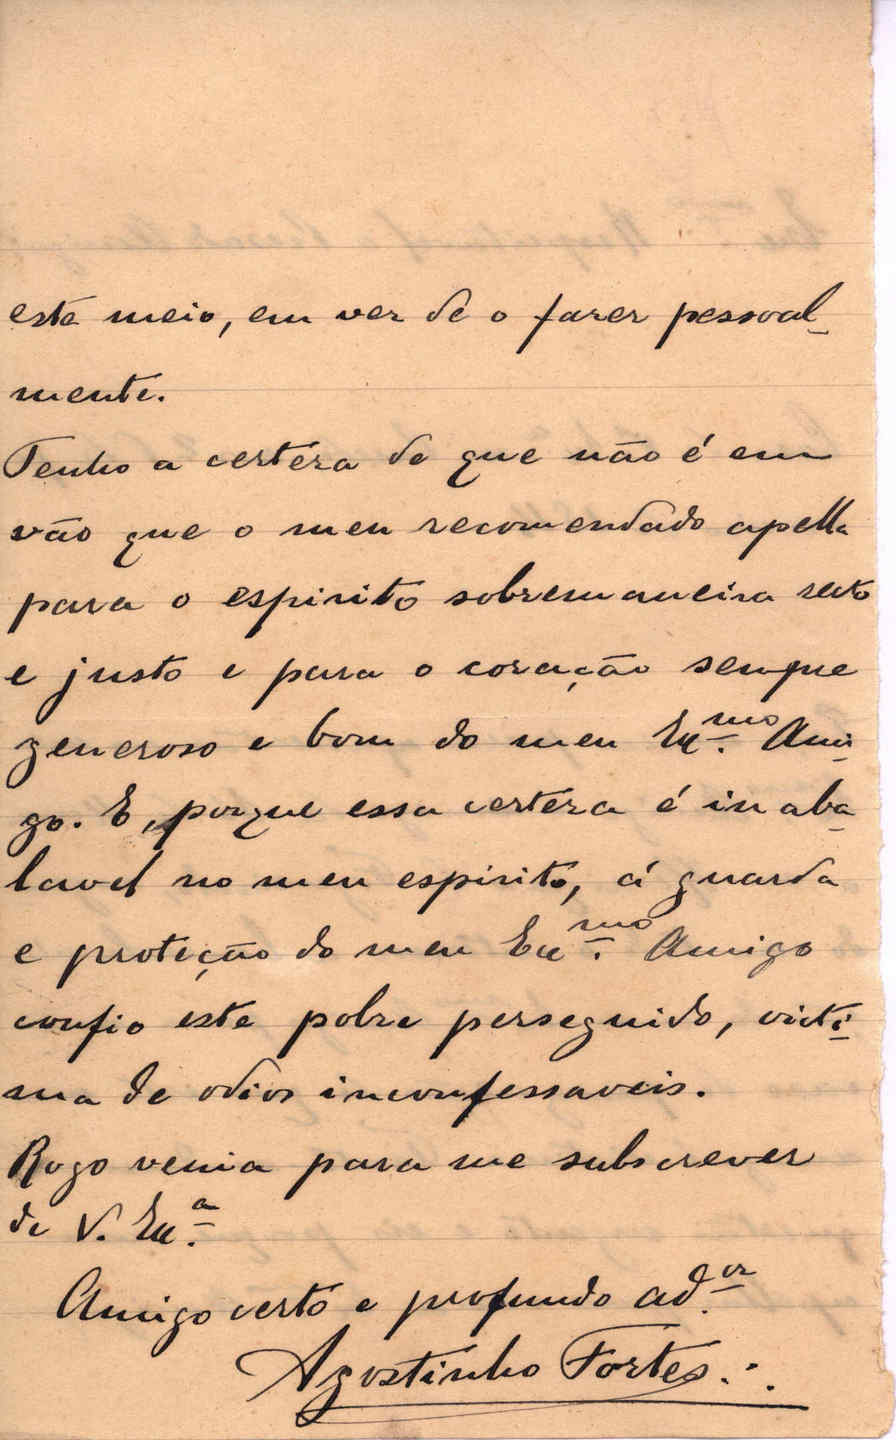 este meio, em vez de o fazer pessoal-
mente.
Tenho a certêza de que não é em
vão que o meu recomendado apella
para o espirito sobremaneira recto
e justo e para o coração sempre
generoso e bom do meu Ex.mo Ami-
go. E, porque essa certêza é inaba-
lavel no meu espirito, á guarda
e proteção do meu Ex.mo Amigo
confio este pobre perseguido, victi-
ma de odios inconfessaveis.
Rogo venia para me subscrever
de V. Ex.a
Amigo certo e profundo ad.or
Agostinho Fortes ∴